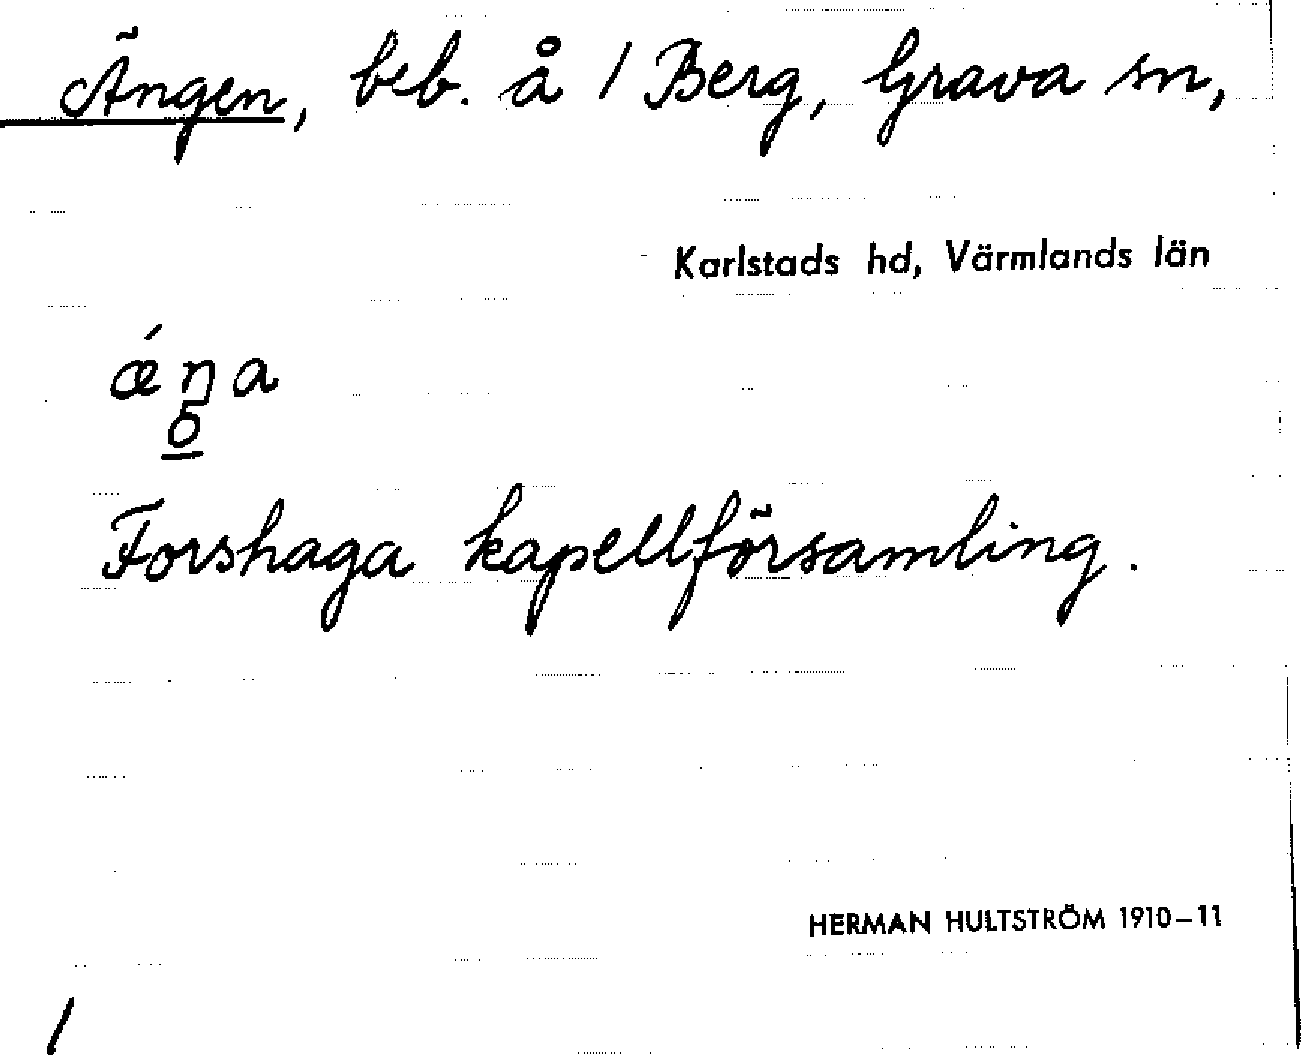 Ängen, beb. å 1 Berg, Grava sn,
Karlstads hd, Värmlands län
ǽŋa
Forshaga kapellförsamling.
HERMAN HULTSTRÖM 1910–11